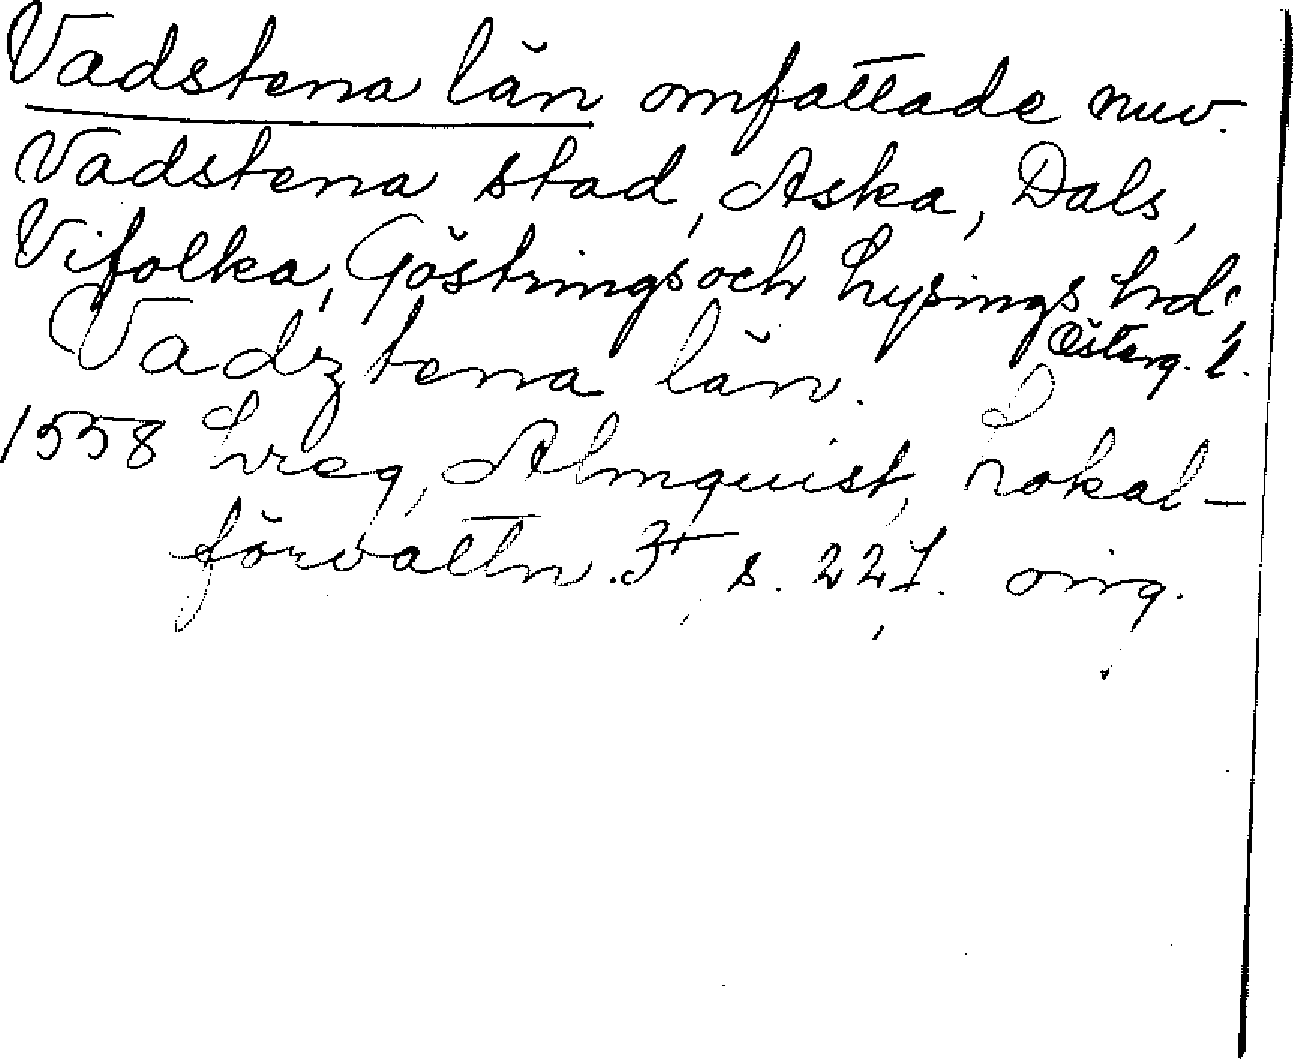 Vadstena län omfattade nuv.
Vadstena stad, Aska, Dals,
Vifolka, Göstrings och Lysings hrd,
Österg. l.
Vadztena län.
1558 Lreg, Almquist, Lokal-
förvaltn. 3, s. 227. orig.